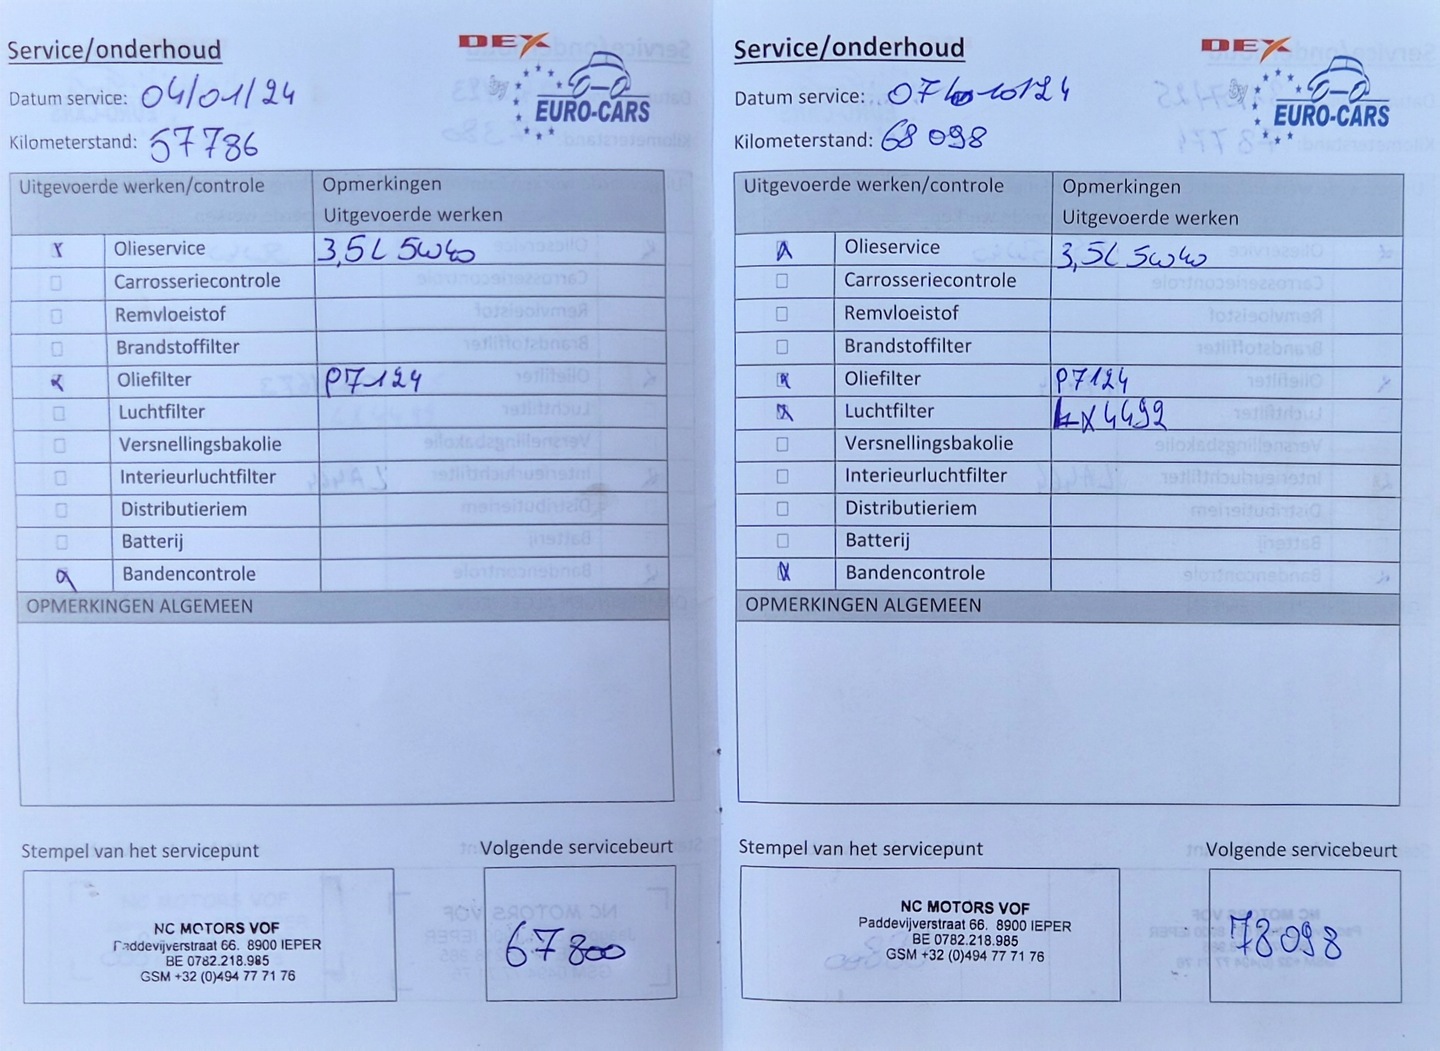 Service/onderhoud
DEX
EURO-CARS
Datum service: 04/01/24
Kilometerstand: 57786
Uitgevoerde werken/controle
Opmerkingen
Uitgevoerde werken
Olieservice 3,5L 5w40
Carrosseriecontrole
Remvloeistof
Brandstoffilter
Oliefilter P7124
Luchtfilter
Versnellingsbakolie
Interieurluchtfilter
Distributieriem
Batterij
Bandencontrole
OPMERKINGEN ALGEMEEN
Stempel van het servicepunt
Volgende servicebeurt
NC MOTORS VOF
Paddevijverstraat 66. 8900 IEPER
BE 0782.218.985
GSM +32 (0)494 77 71 76
67800
Service/onderhoud
DEX
EURO-CARS
Datum service: 07/10/24
Kilometerstand: 68098
Uitgevoerde werken/controle
Opmerkingen
Uitgevoerde werken
Olieservice 3,5L 5w40
Carrosseriecontrole
Remvloeistof
Brandstoffilter
Oliefilter P7124
Luchtfilter LX4492
Versnellingsbakolie
Interieurluchtfilter
Distributieriem
Batterij
Bandencontrole
OPMERKINGEN ALGEMEEN
Stempel van het servicepunt
Volgende servicebeurt
NC MOTORS VOF
Paddevijverstraat 66. 8900 IEPER
BE 0782.218.985
GSM +32 (0)494 77 71 76
78098